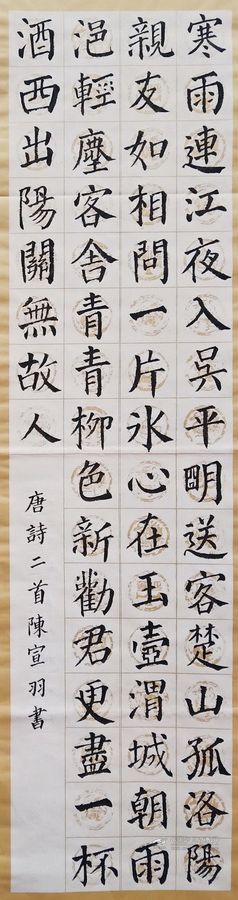 寒雨連江夜入吳平明送客楚山孤洛陽
親友如相問一片氷心在玉壺渭城朝雨
浥輕塵客舍青青柳色新勸君更盡一杯
酒西出陽關無故人
唐詩二首陳宣羽書